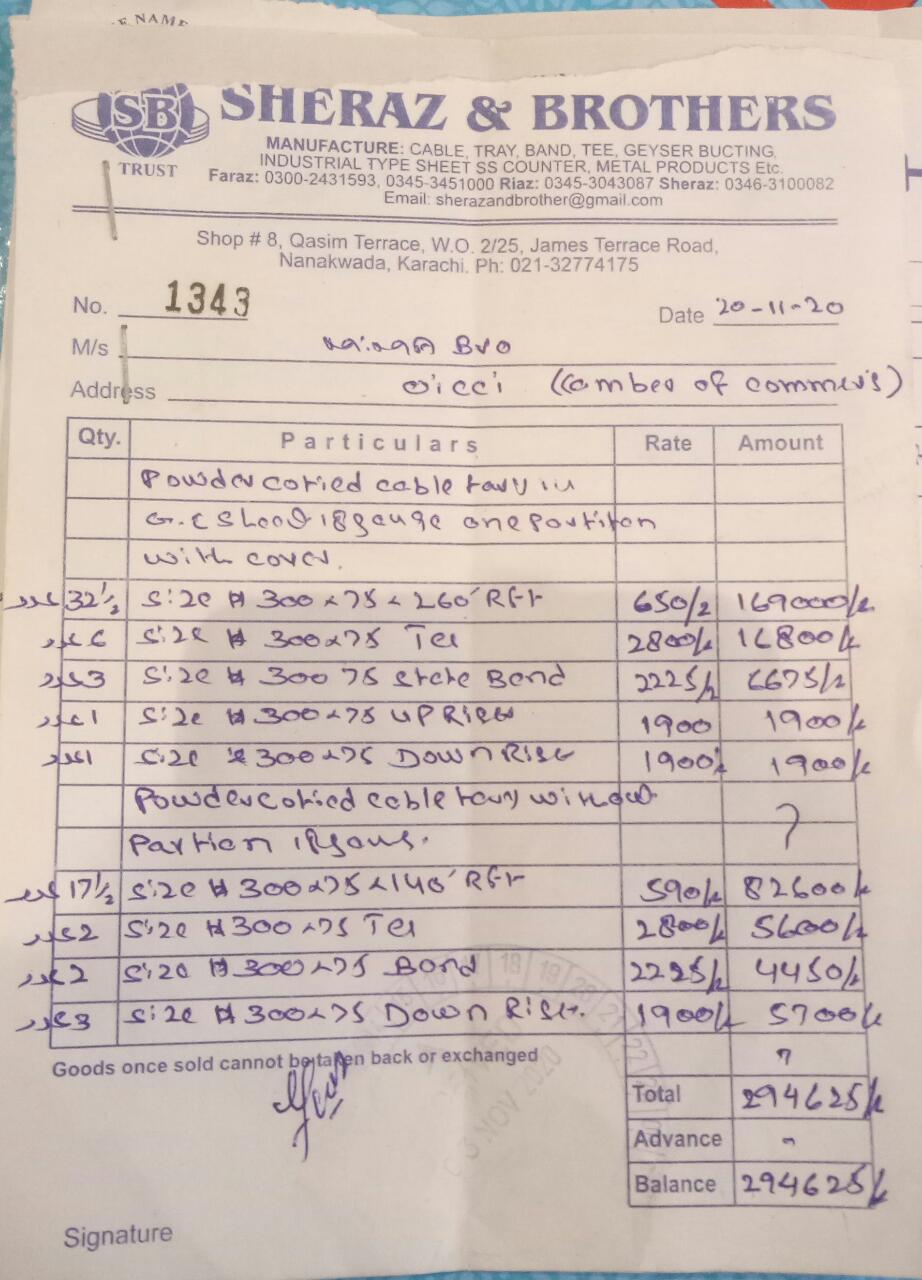 E NAME
SB
TRUST
SHERAZ & BROTHERS
MANUFACTURE: CABLE, TRAY, BAND, TEE, GEYSER BUCTING,
INDUSTRIAL TYPE SHEET SS COUNTER, METAL PRODUCTS Etc.
Faraz: 0300-2431593, 0345-3451000 Riaz: 0345-3043087 Sheraz: 0346-3100082
Email: sherazandbrother@gmail.com
Shop # 8, Qasim Terrace, W.O. 2/25, James Terrace Road,
Nanakwada, Karachi. Ph: 021-32774175
No. 1343 Date 20-11-20
M/s Bro
Address oicci (Comber of commers)
Qty. Particulars Rate Amount
Powder cotied cable
18 gauge one portiton
with cover.
32 1/2 عدد Size # 300 x 75 x 260' RFt 650/2 169000/-
6 عدد Size # 300x75 Tee 2800/- 16800/-
3 عدد Size # 300 75 Bend 2225/- 6675/-
1 عدد Size # 300x75 UP Rise 1900 1900/-
1 عدد Size # 300x75 Down Rise 1900/- 1900/-
Powder cotied cable without
Partion
17 1/2 عدد Size # 300x75x140' RFt 590/- 82600/-
2 عدد Size # 300x75 Tee 2800/- 5600/-
2 عدد Size # 300x75 Bend 2225/- 4450/-
3 عدد Size # 300x75 Down Rise. 1900/- 5700/-
Goods once sold cannot be taken back or exchanged
Total 294625/-
Advance -
Balance 294625/-
NOV 2020
Signature